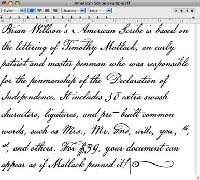 American Scribe example.rtf
Brian Willson's American Scribe is based on
the lettering of Timothy Matlack, an early
patriot and master penman who was responsible
for the penmanship of the Declaration of
Independence. It includes 38 extra swash
characters, ligatures, and pre-built common
words, such as Mrs., Mr., and, with, you, th,
st, and others. For $39, your document can
appear as if Matlack penned it!